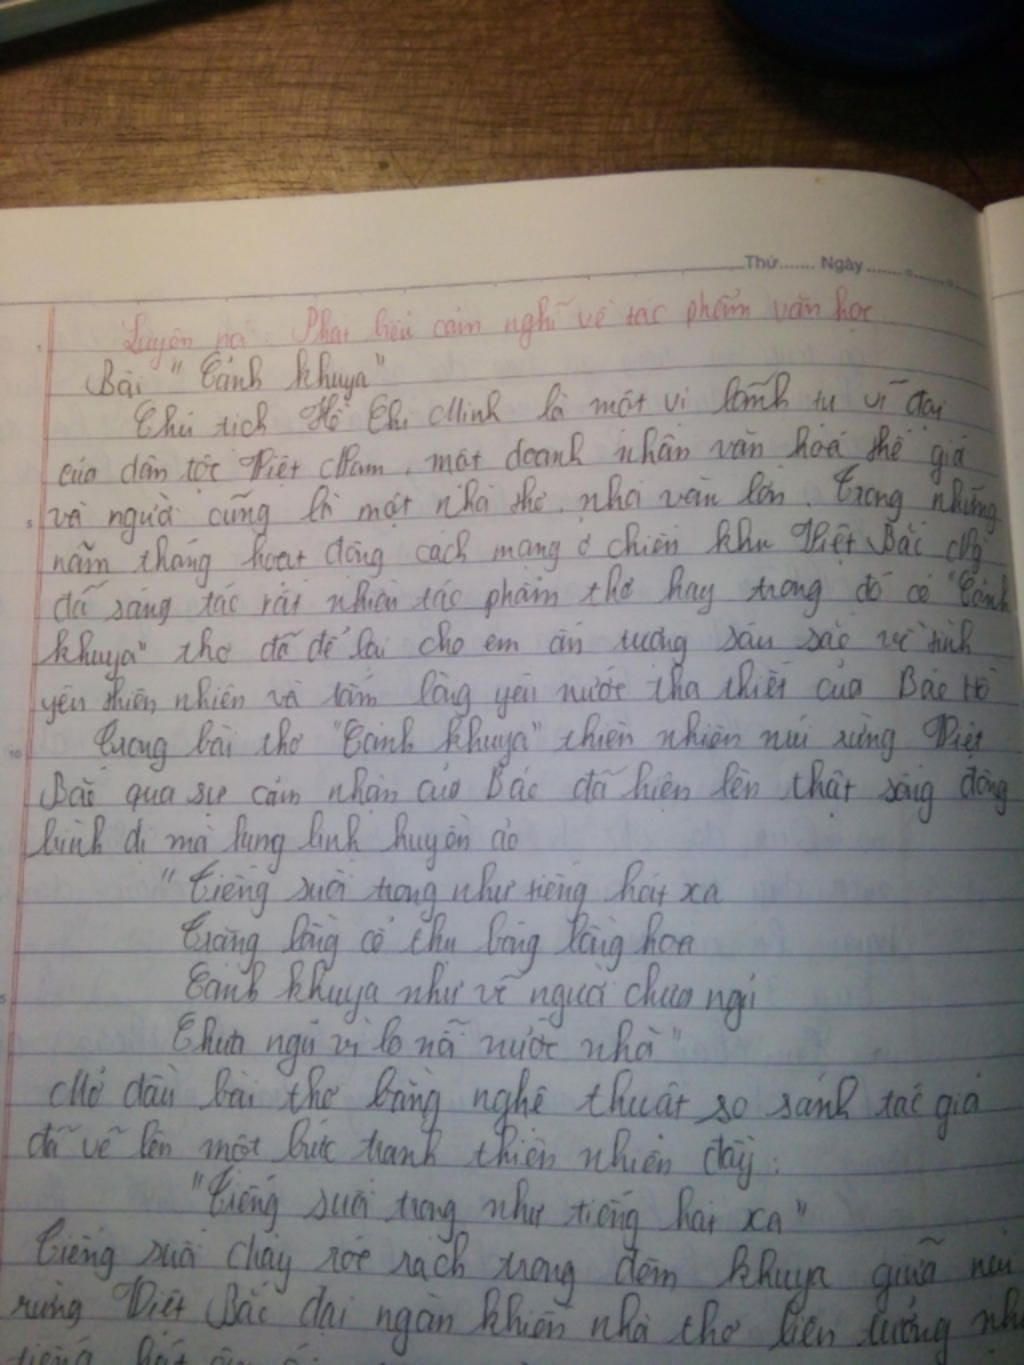 Thứ....... Ngày.......
Luyện nói: Phát biểu cảm nghĩ về tác phẩm văn học
Bài "Cảnh khuya"
Chủ tịch Hồ Chí Minh là một vị lãnh tụ vĩ đại
của dân tộc Việt Nam, một doanh nhân văn hoá thế giới
và người cũng là một nhà thơ, nhà văn lớn. Trong những
năm tháng hoạt động cách mạng ở chiến khu Việt Bắc Ng
đã sáng tác rất nhiều tác phẩm thơ hay trong đó có "Cảnh
khuya" thơ đã để lại cho em ấn tượng sâu sắc về tình
yêu thiên nhiên và tấm lòng yêu nước tha thiết của Bác Hồ
Trong bài thơ "Cảnh khuya" thiên nhiên núi rừng Việt
Bắc qua sự cảm nhận của Bác đã hiện lên thật sống động
bình dị mà lung linh huyền ảo
"Tiếng suối trong như tiếng hát xa
Trăng lồng cổ thụ bóng lồng hoa
Cảnh khuya như vẽ người chưa ngủ
Chưa ngủ vì lo nỗi nước nhà"
Mở đầu bài thơ bằng nghệ thuật so sánh tác giả
đã vẽ lên một bức tranh thiên nhiên đầy:
"Tiếng suối trong như tiếng hát xa"
Tiếng suối chảy róc rách trong đêm khuya giữa núi
rừng Việt Bắc đại ngàn khiến nhà thơ liên tưởng như
tiếng hát